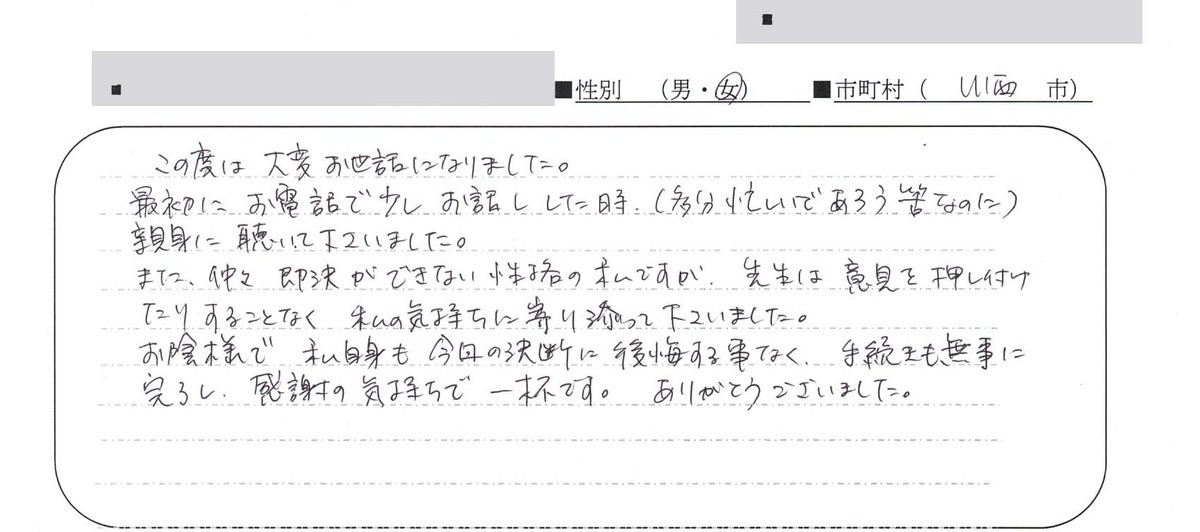 ■性別 (男・女) ■市町村 ( 川西 市)
この度は 大変 お世話になりました。
最初に お電話で少し お話し した時、(多分 忙しいであろう 筈なのに)
親身に 聴いて下さいました。
また、仲々 即決ができない 性格の私ですが、先生は 意見を 押し付け
たりすることなく 私の気持ちに寄り添って下さいました。
お陰様で 私自身も 今回の決断に 後悔する事なく、手続きも無事に
完了し、感謝の気持ちで一杯です。 ありがとうございました。